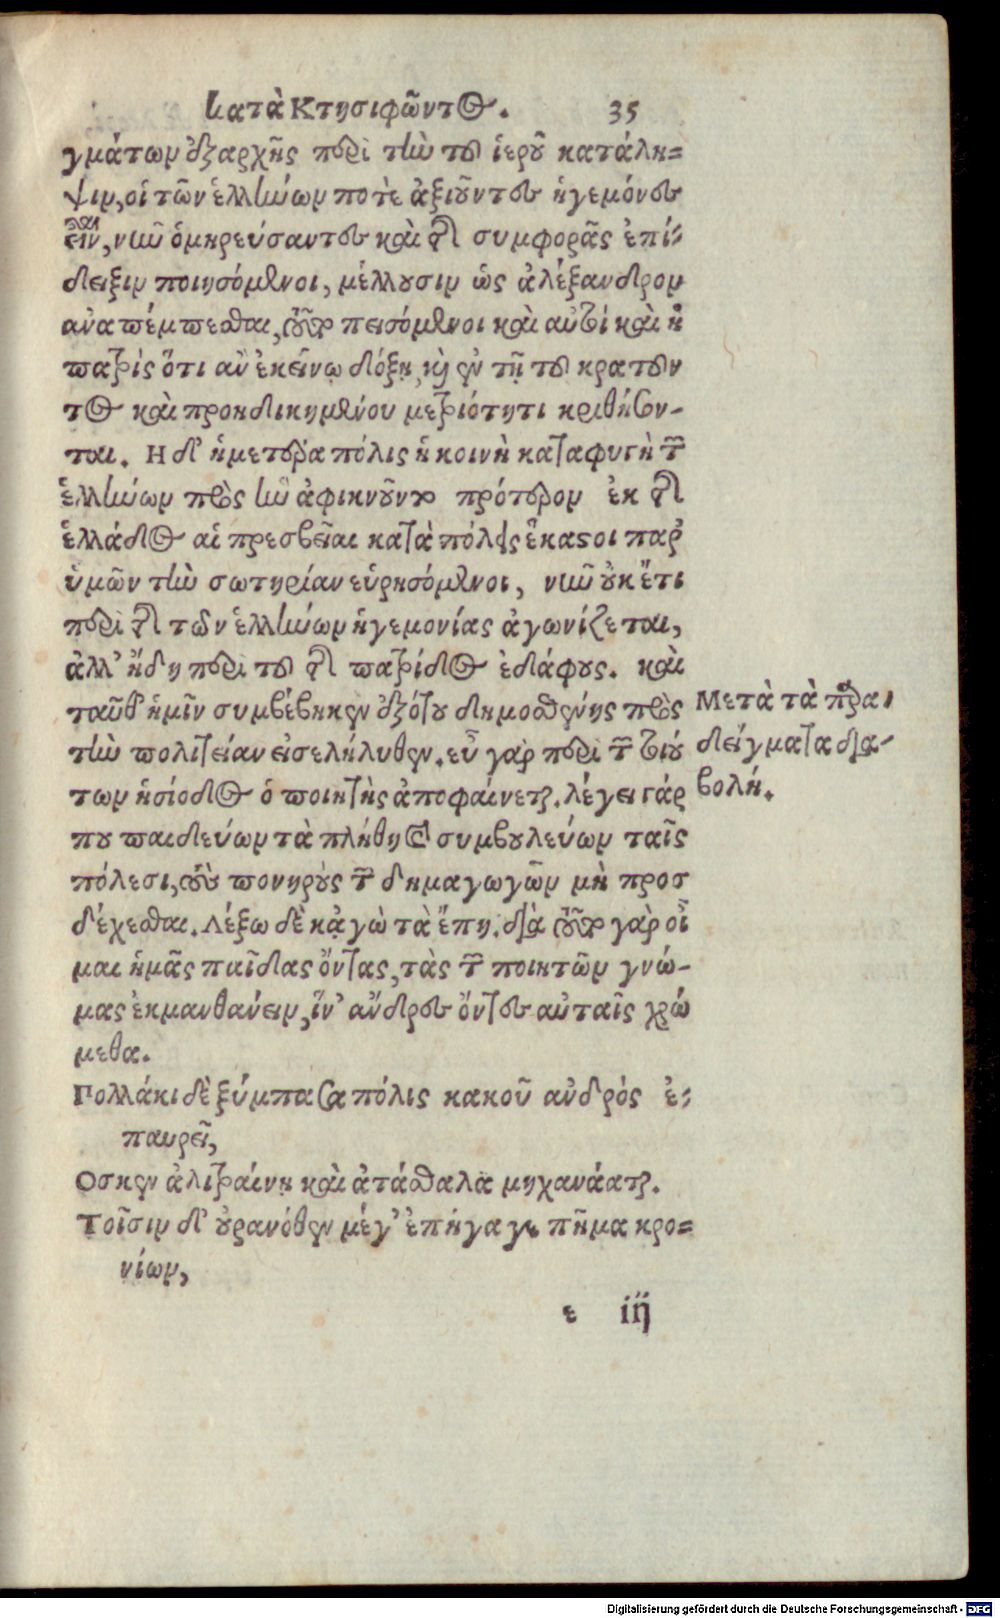 κατὰ Κτησιφῶντος. 35
γμάτων ἐξαρχῆς περὶ τὴν τοῦ ἱεροῦ κατάλη=
ψιν, οἱ τῶν ἑλλήνων ποτὲ ἀξιοῦντες ἡγεμόνες
εἶναι, νῦν ὁμηρεύσαντες καὶ τῆς συμφορᾶς ἐπί=
δειξιν ποιησόμενοι, μέλλουσιν ὡς ἀλέξανδρον
ἀναπέμπεσθαι, τοῦτο πεισόμενοι καὶ αὐτοὶ καὶ ἡ
πατρὶς ὅτι ἂν ἐκείνῳ δόξῃ, καὶ ἐν τῇ τοῦ κρατοῦν
τος καὶ προηδικημένου μετριότητι κριθήσον-
ται. Η δ' ἡμετέρα πόλις ἡ κοινὴ καταφυγὴ τῶν
ἑλλήνων πρὸς ἣν ἀφικνοῦντο πρότερον ἐκ τῆς
ἑλλάδος αἱ πρεσβεῖαι κατὰ πόλεις ἕκαστοι παρ'
ὑμῶν τὴν σωτηρίαν εὑρησόμενοι, νῦν οὐκ ἔτι
περὶ τῆς τῶν ἑλλήνων ἡγεμονίας ἀγωνίζεται,
ἀλλ' ἤδη περὶ τοῦ τῆς πατρίδος ἐδάφους. καὶ
ταῦθ' ἡμῖν συμβέβηκεν ἐξότου δημοσθένης πρὸς
τὴν πολιτείαν εἰσελήλυθεν. εὖ γὰρ περὶ τῶν τοιού
των ἡσίοδος ὁ ποιητὴς ἀποφαίνεται. λέγει γάρ
που παιδεύων τὰ πλήθη καὶ συμβουλεύων ταῖς
πόλεσι, τοὺς πονηροὺς τῶν δημαγωγῶν μὴ προσ
δέχεσθαι. Λέξω δὲ κᾀγὼ τὰ ἔπη. διὰ τοῦτο γὰρ οἶ
μαι ἡμᾶς παῖδας ὄντας, τὰς τῶν ποιητῶν γνώ-
μας ἐκμανθάνειν, ἵν' ἄνδρες ὄντες αὐταῖς χρώ
μεθα.
Πολλάκι δὲ ξύμπασα πόλις κακοῦ ἀνδρὸς ἐ=
παυρεῖ,
Οσκεν ἀλιτραίνῃ καὶ ἀτάσθαλα μηχανάαται.
Τοῖσιν δ' οὐρανόθεν μέγ' ἐπήγαγε πῆμα κρο=
νίων,
ε iij
Μετὰ τὰ παρα
δείγματα δια-
βολή.
Digitalisierung gefördert durch die Deutsche Forschungsgemeinschaft - DFG